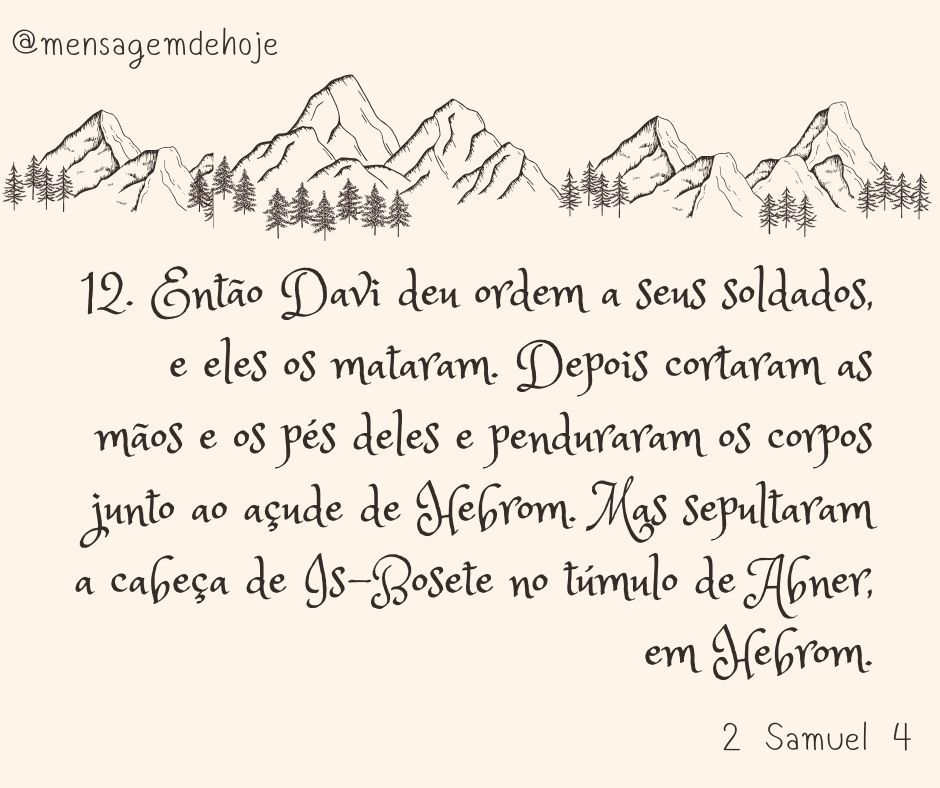 @mensagemdehoje
12. Então Davi deu ordem a seus soldados,
e eles os mataram. Depois cortaram as
mãos e os pés deles e penduraram os corpos
junto ao açude de Hebrom. Mas sepultaram
a cabeça de Is-Bosete no túmulo de Abner,
em Hebrom.
2 Samuel 4